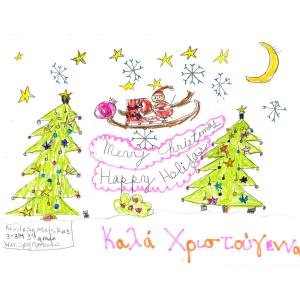 Merry Christmas
Happy Holidays
Καλά Χριστούγεννα
3rd grade